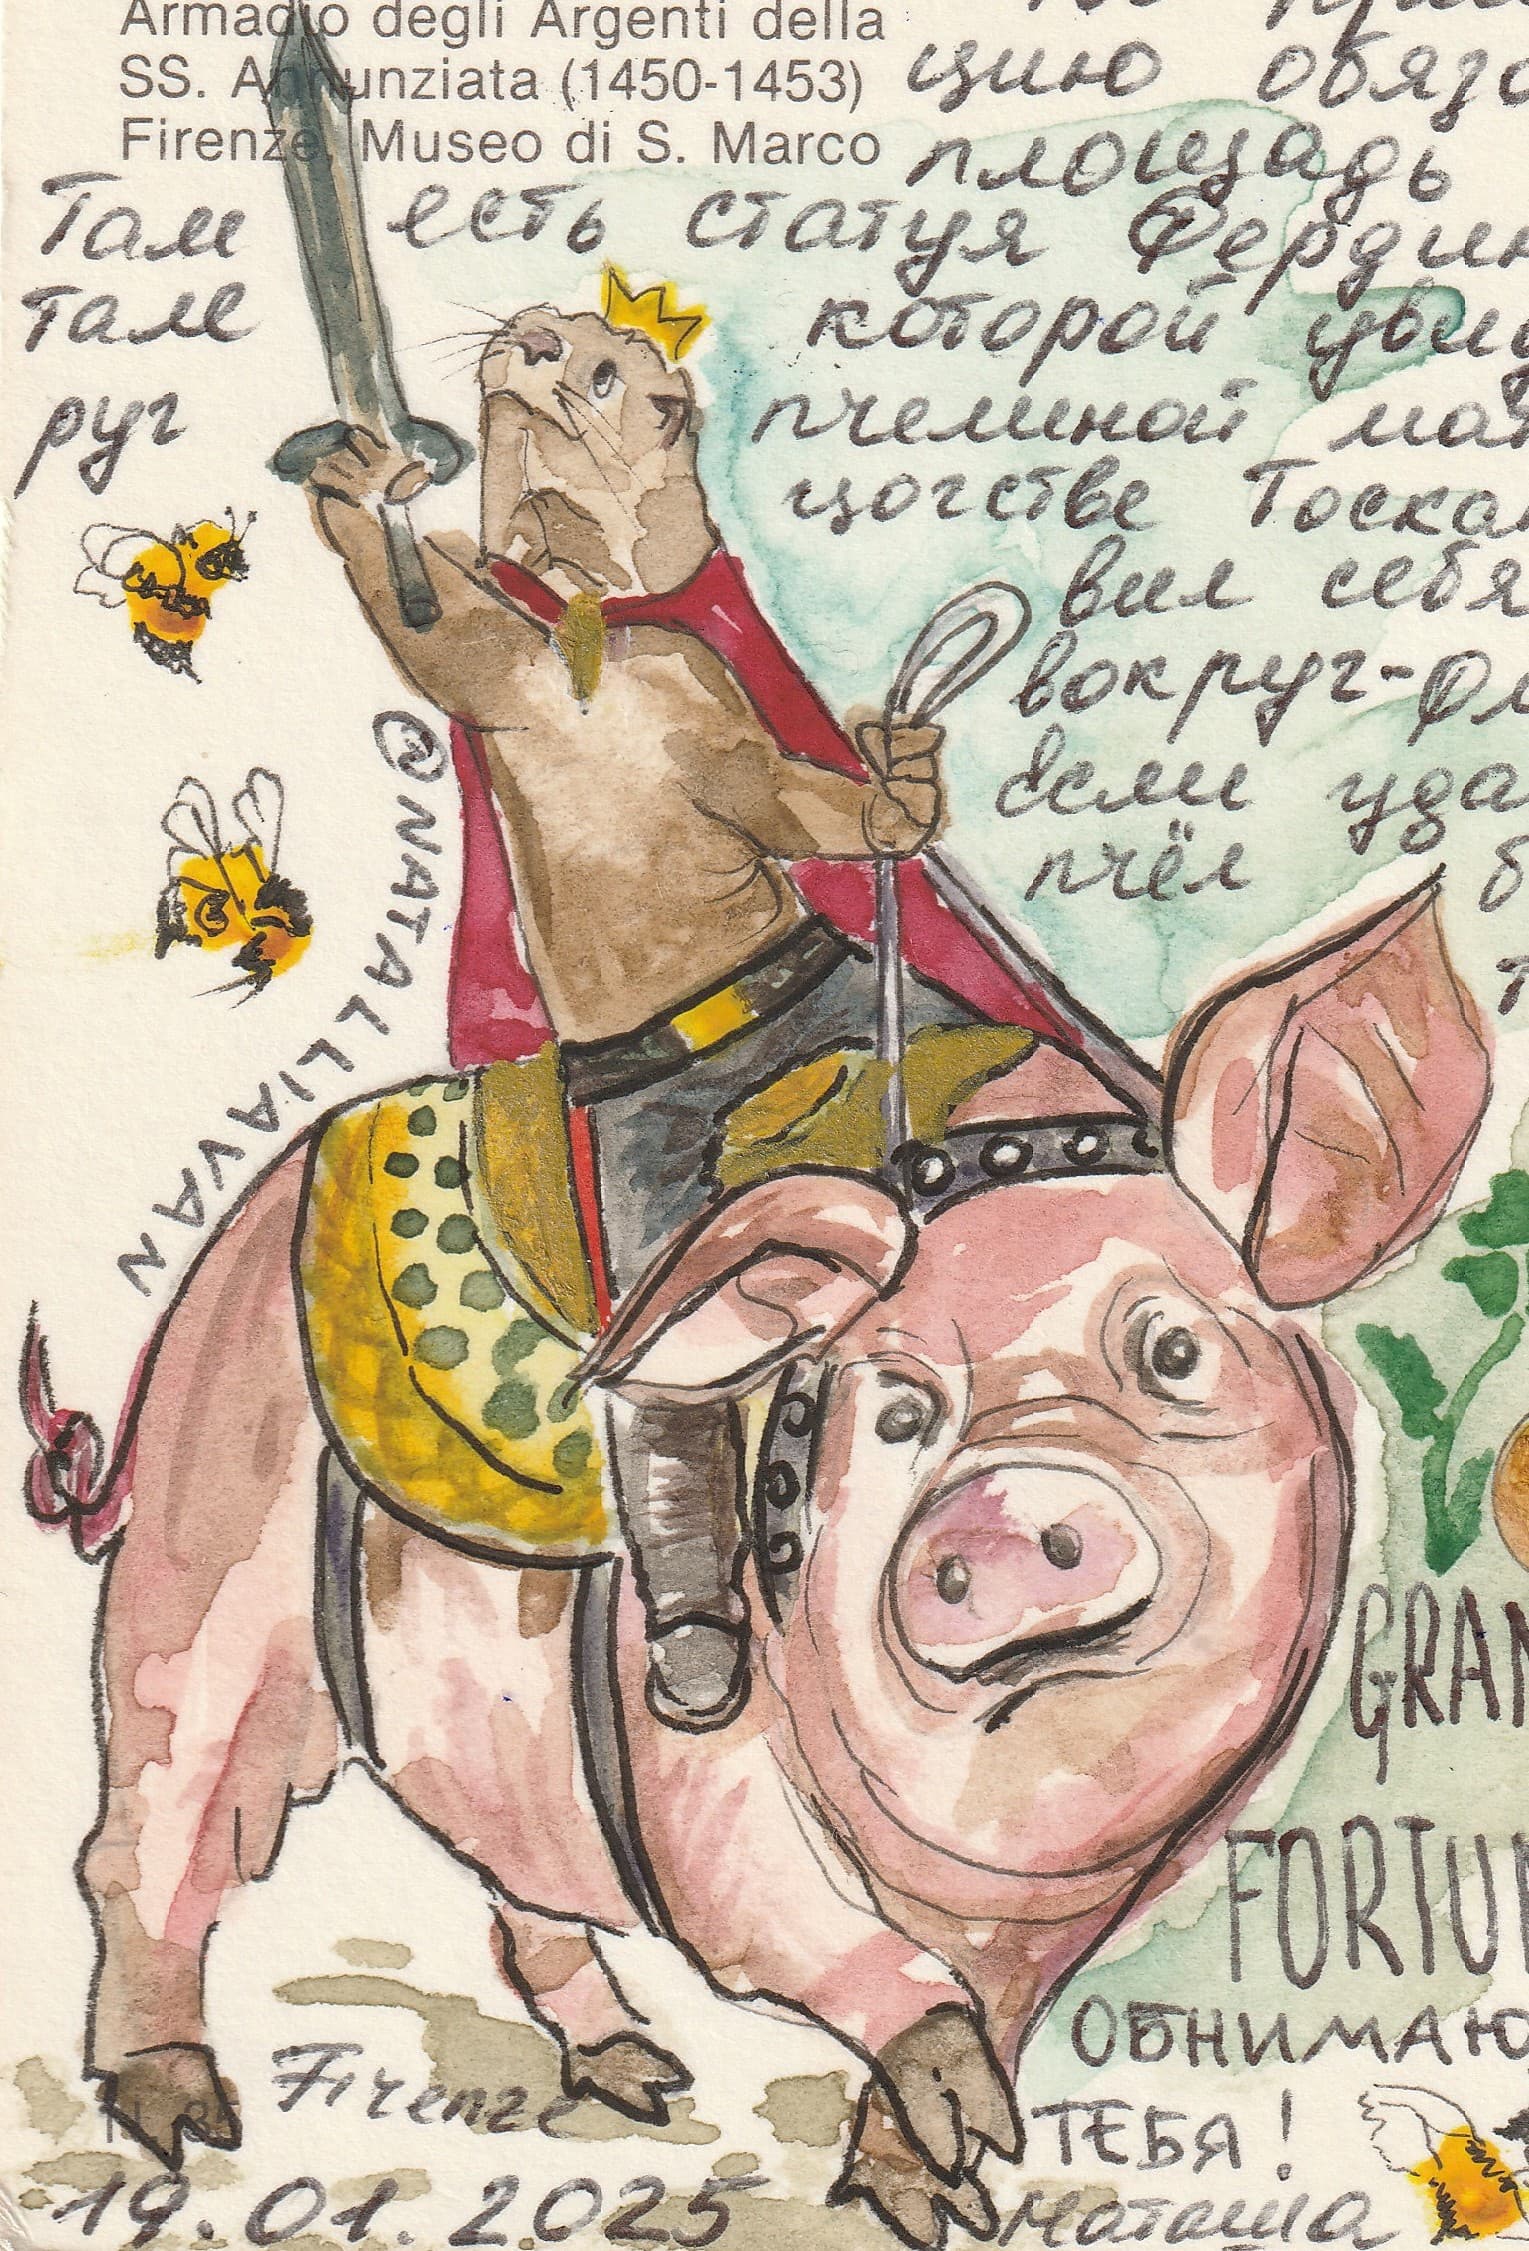 Armadio degli Argenti della
SS. Annunziata (1450-1453)
Firenze, Museo di S. Marco
цию обяза
площадь
Там есть статуя Ферди
там которой увид
руг пчелиной
цогстве Тоска
вил себя
вокруг-
Если уда
пчёл б
@NATALLIAVAN
GRAN
FORTUN
ОБНИМАЮ
ТЕБЯ!
Наташа
Firenze
19.01.2025